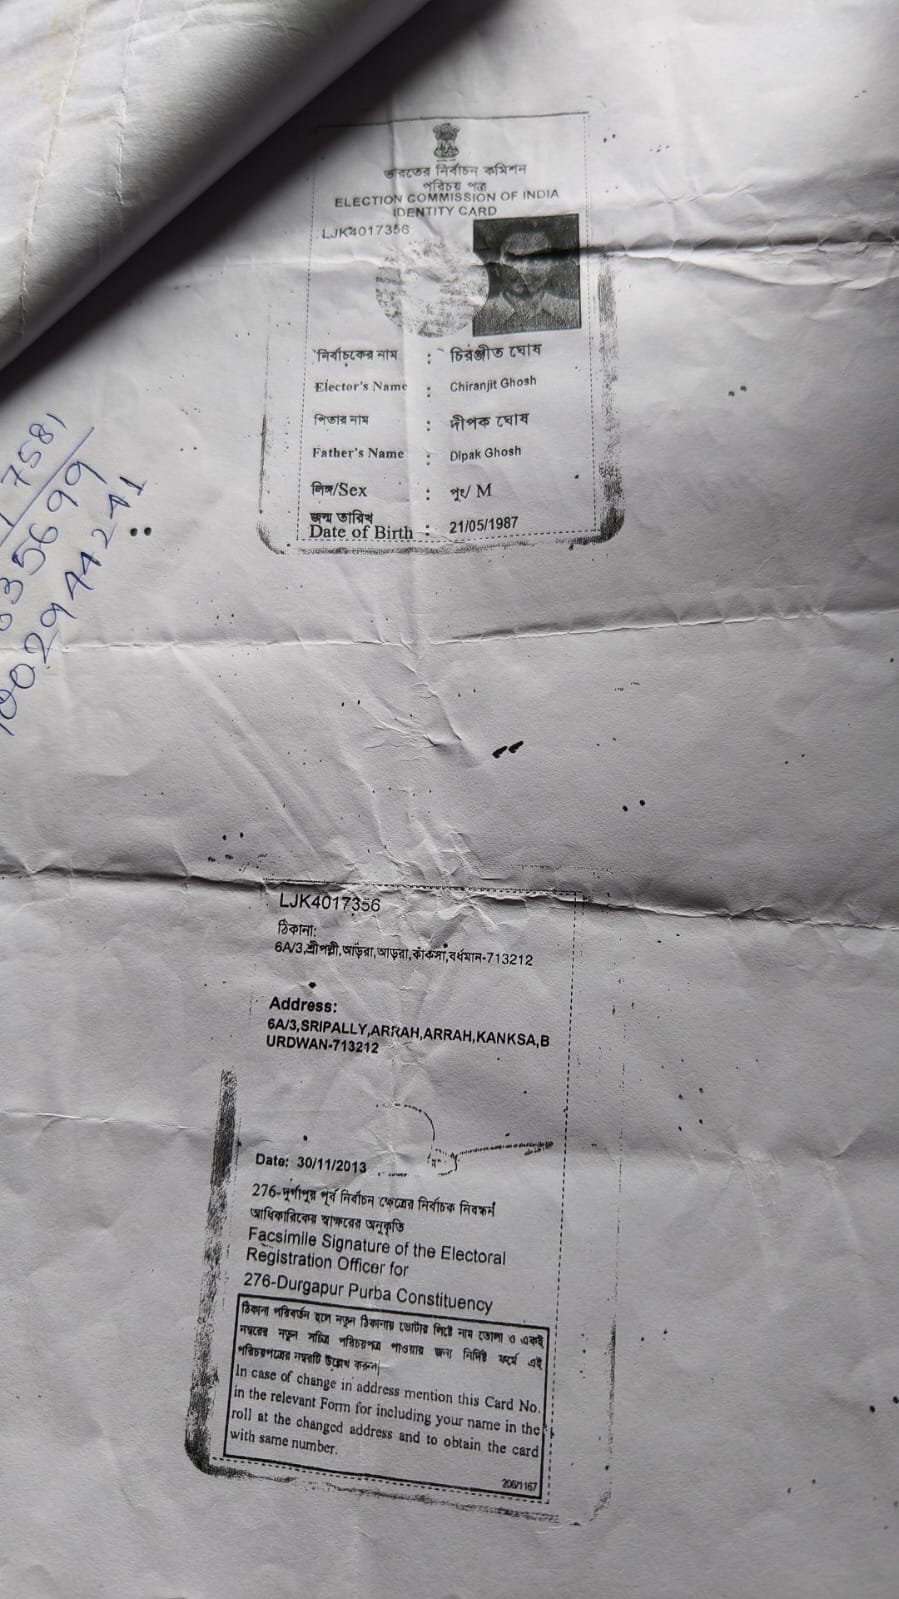 ভারতের নির্বাচন কমিশন
পরিচয় পত্র
ELECTION COMMISSION OF INDIA
IDENTITY CARD
LJK4017356
নির্বাচকের নাম : চিরঞ্জীত ঘোষ
Elector's Name : Chiranjit Ghosh
পিতার নাম : দীপক ঘোষ
Father's Name : Dipak Ghosh
লিঙ্গ/Sex : পুং/ M
জন্ম তারিখ
Date of Birth : 21/05/1987
7581
35699
002944241
LJK4017356
ঠিকানা:
6A/3,শ্রীপল্লী,আড়রা,আড়রা,কাঁকসা,বর্ধমান-713212
Address:
6A/3,SRIPALLY,ARRAH,ARRAH,KANKSA,B
URDWAN-713212
Date: 30/11/2013
276-দুর্গাপুর পূর্ব নির্বাচন ক্ষেত্রের নির্বাচক নিবন্ধন
আধিকারিকের স্বাক্ষরের অনুকৃতি
Facsimile Signature of the Electoral
Registration Officer for
276-Durgapur Purba Constituency
ঠিকানা পরিবর্তন হলে নতুন ঠিকানায় ভোটার লিষ্টে নাম তোলা ও একই
নম্বরের নতুন সচিত্র পরিচয়পত্র পাওয়ার জন্য নির্দিষ্ট ফর্মে এই
পরিচয়পত্রের নম্বরটি উল্লেখ করুন।
In case of change in address mention this Card No.
in the relevant Form for including your name in the
roll at the changed address and to obtain the card
with same number.
206/1167